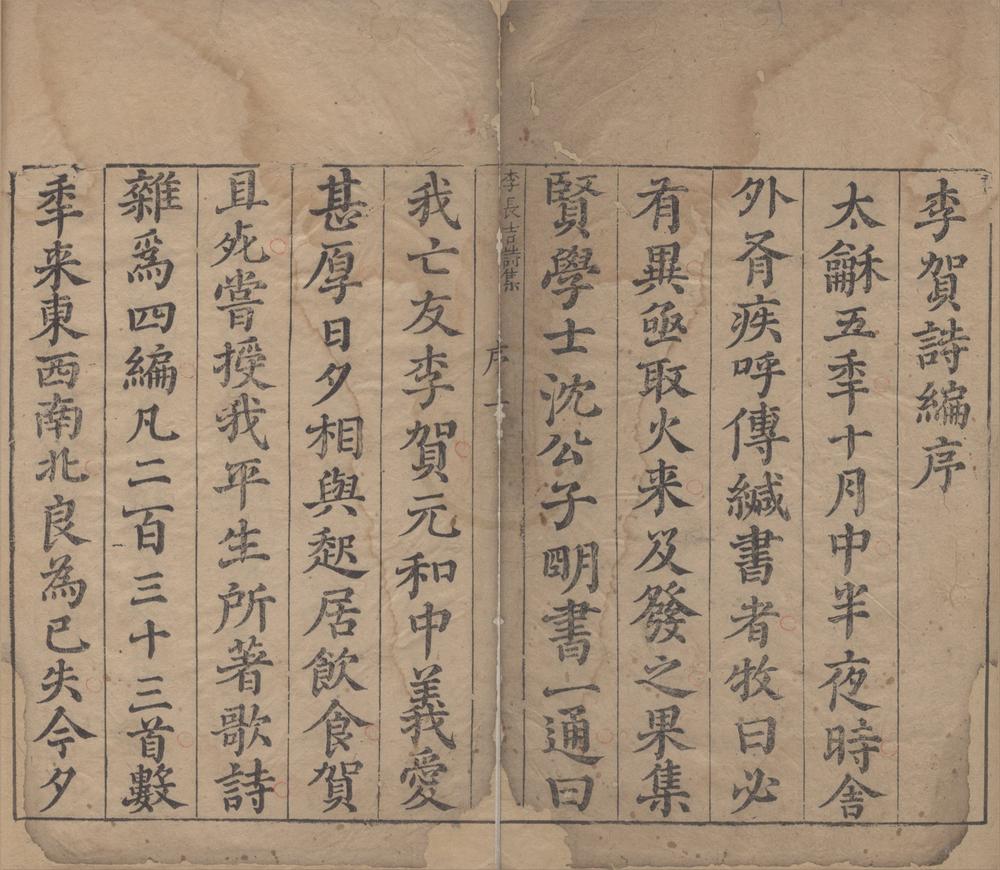 李賀詩編序
太龢五秊十月中半夜時舎
外有疾呼傳緘書者牧曰必
有異亟取火来及發之果集
賢學士沈公子明書一通曰
李長吉詩集
序
一
我亡友李賀元和中義愛
甚厚日夕相與起居飲食賀
且死嘗授我平生所著歌詩
雜爲四編凡二百三十三首數
秊来東西南北良為已失今夕